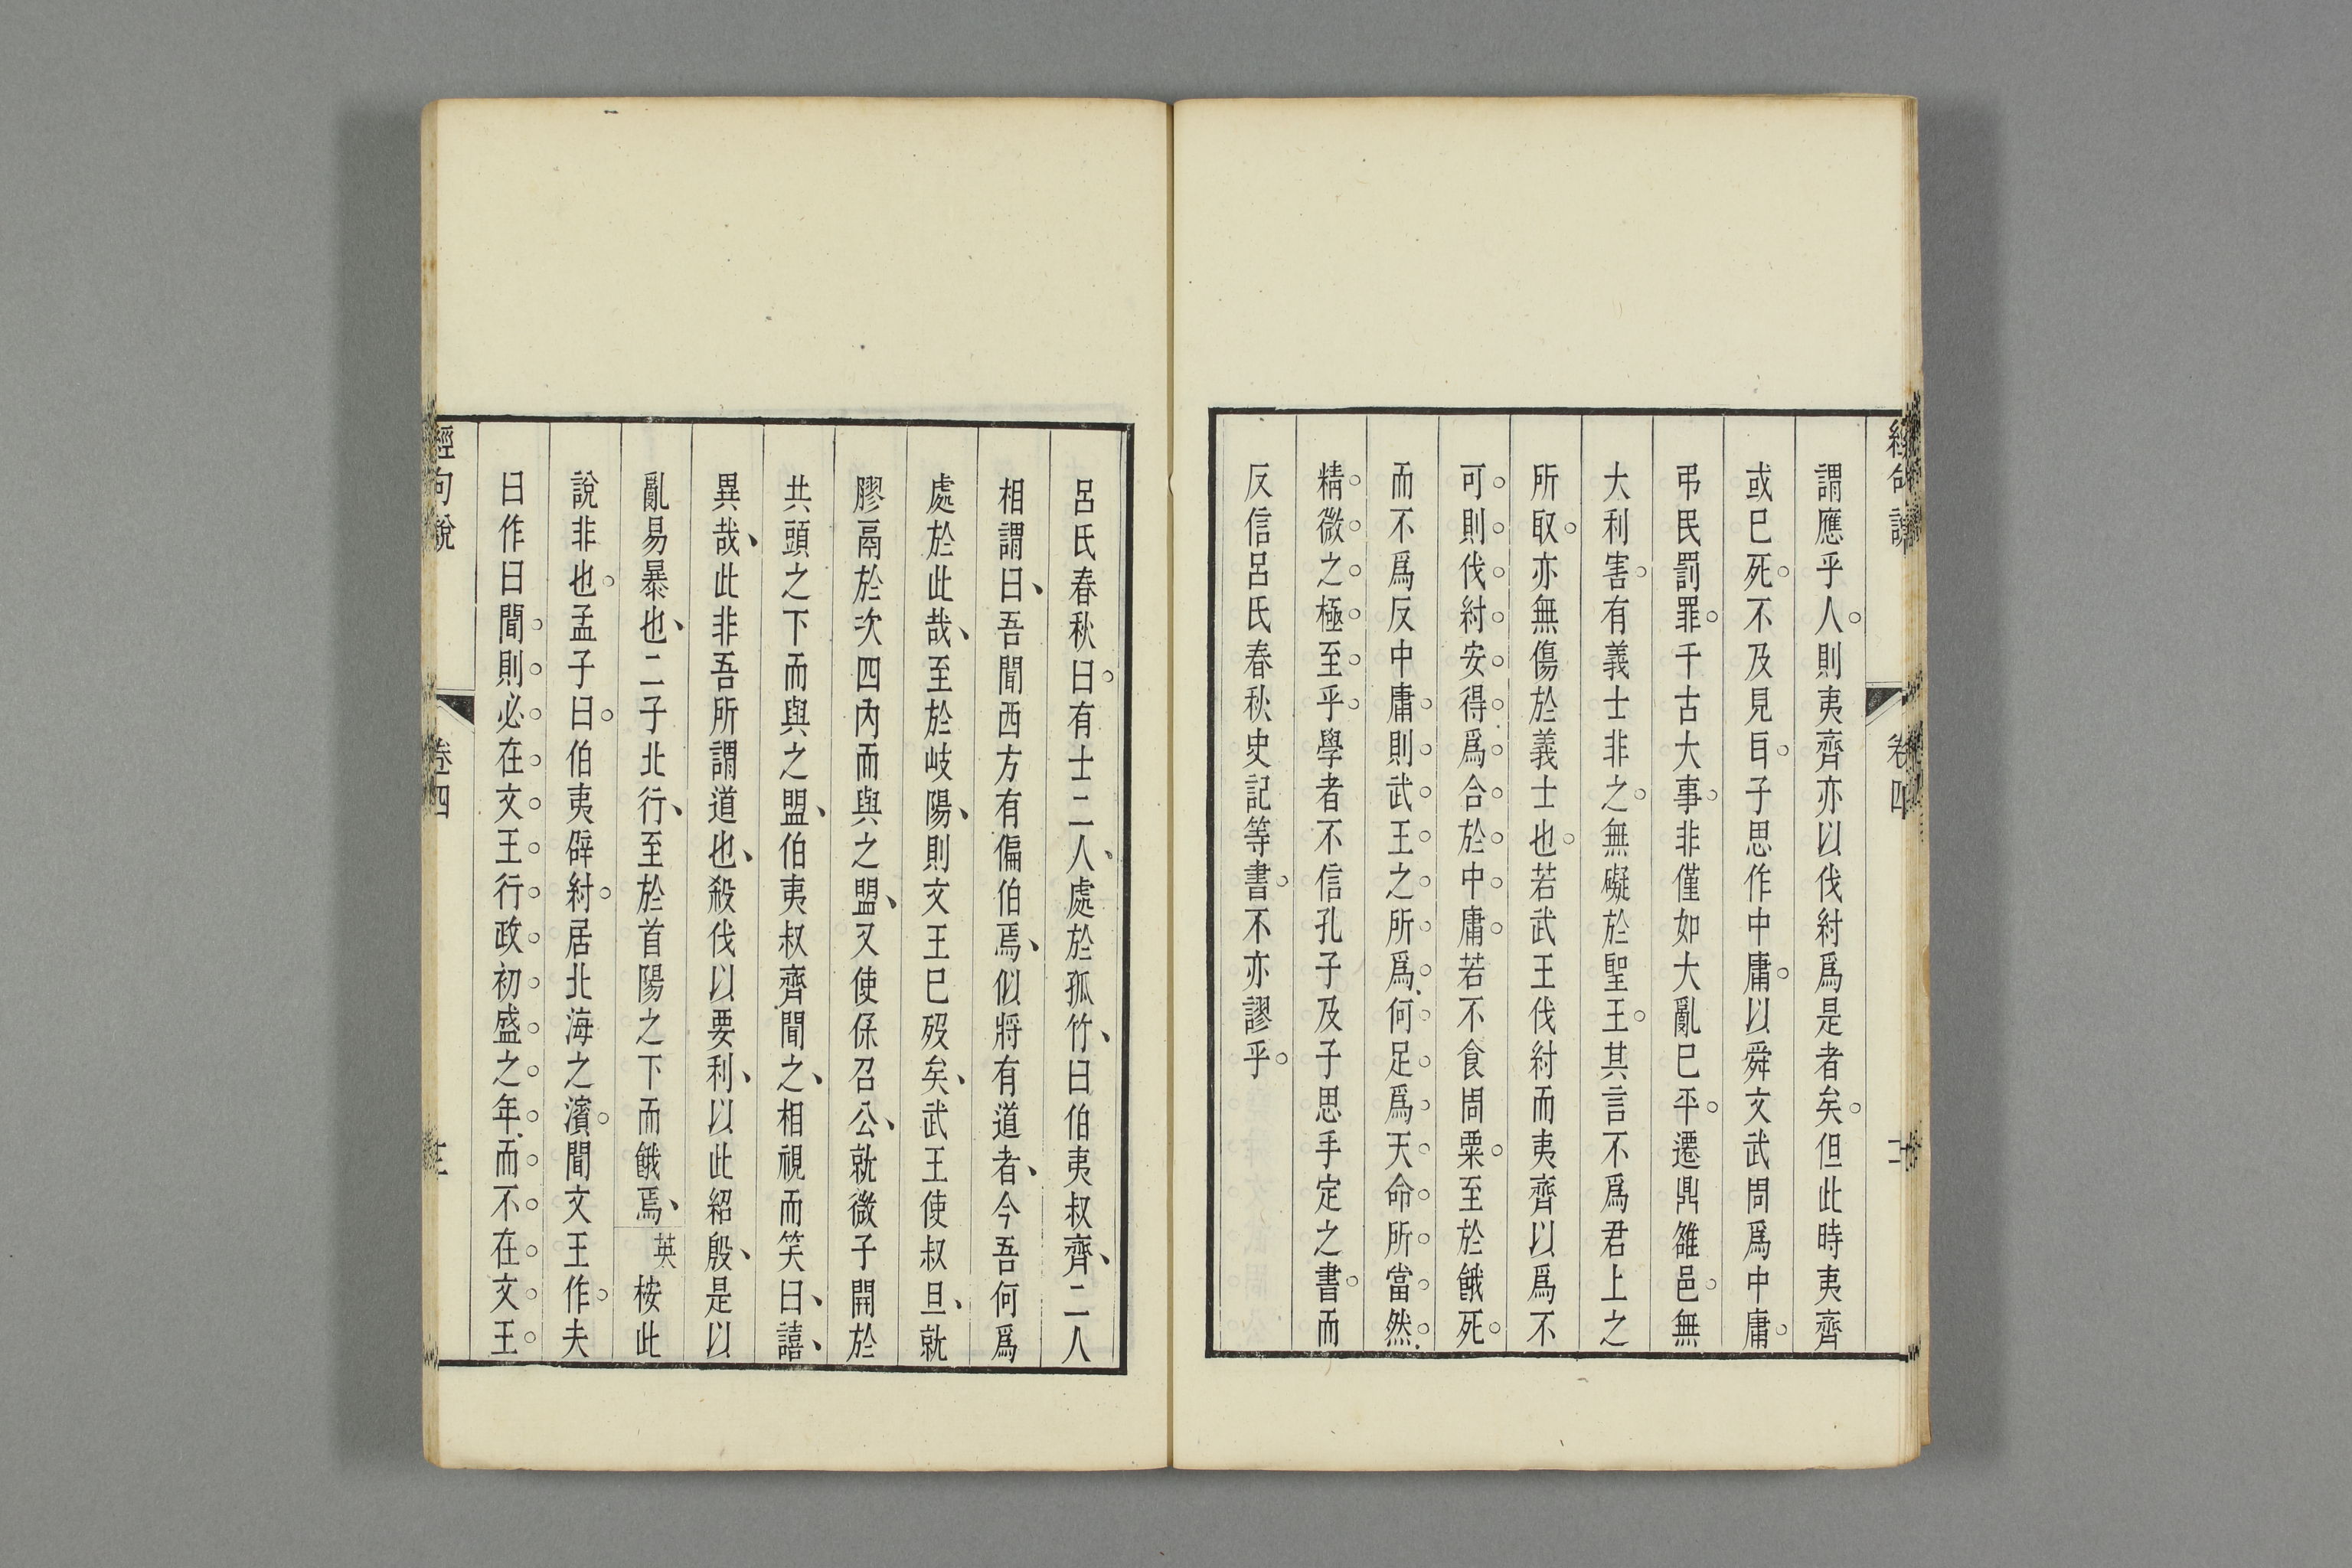 謂應乎人則夷齊亦以伐紂爲是者矣但此時夷齊
或巳死不及見耳子思作中庸以舜文武周爲中庸
弔民罰罪千古大事非僅如大亂巳平遷鼎雒邑無
大利害有義士非之無礙於聖王其言不爲君上之
所取亦無傷於義士也若武王伐紂而夷齊以爲不
可則伐紂安得爲合於中庸若不食周粟至於餓死
而不爲反中庸則武王之所爲何足爲天命所當然
精微之極至乎學者不信孔子及子思手定之書而
反信呂氏春秋史記等書不亦謬乎
呂氏春秋曰有士二人處於孤竹曰伯夷叔齊二人
相謂曰吾聞西方有偏伯焉似將有道者今吾何爲
處於此哉至於岐陽則文王巳歿矣武王使叔旦就
膠鬲於次四內而與之盟又使保召公就微子開於
共頭之下而與之盟伯夷叔齊聞之相視而笑曰譆
異哉此非吾所謂道也殺伐以要利以此紹殷是以
亂易暴也二子北行至於首陽之下而餓焉英桉此
說非也孟子曰伯夷辟紂居北海之濱聞文王作夫
曰作曰聞則必在文王行政初盛之年而不在文王
經句說 卷四 三